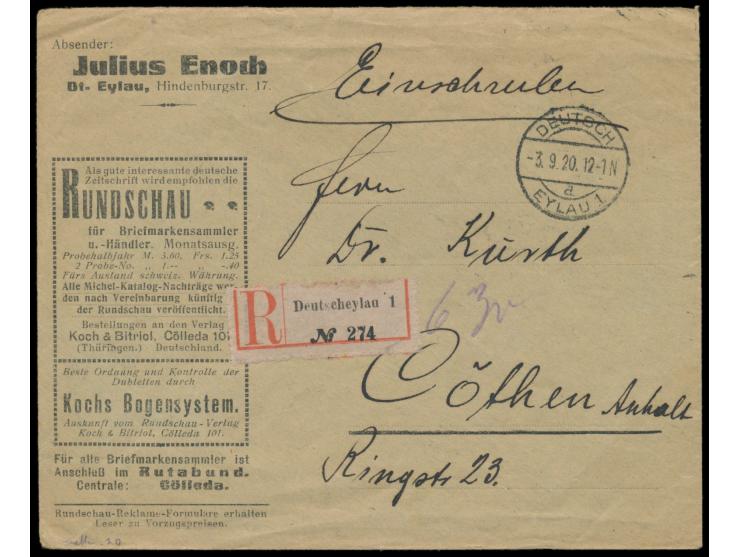 Absender:
Julius Enoch
Dt- Eylau, Hindenburgstr. 17.
Einschreiben
DEUTSCH
-3.9.20. 12-1N
a
EYLAU 1
Als gute interessante deutsche
Zeitschrift wird empfohlen die
RUNDSCHAU
für Briefmarkensammler
u. -Händler. Monatsausg.
Probehalbjahr M. 3.60, Frs. 1.25
2 Probe-No. „ 1.-- „ -.40
Fürs Ausland schweiz. Währung.
Alle Michel-Katalog-Nachträge wer-
den nach Vereinbarung künftig
der Rundschau veröffentlicht.
Bestellungen an den Verlag
Koch & Bitriol, Cölleda 101
(Thüringen.) Deutschland.
Beste Ordnung und Kontrolle der
Dubletten durch
Kochs Bogensystem.
Auskunft vom Rundschau-Verlag
Koch & Bitriol, Cölleda 101.
Für alte Briefmarkensammler ist
Anschluß im Rutabund.
Centrale: Cölleda.
Rundschau-Reklame-Formulare erhalten
Leser zu Vorzugspreisen.
Herrn
Dr. Kurth
R
Deutscheylau 1
№ 274
Cöthen Anhalt
Ringstr 23.